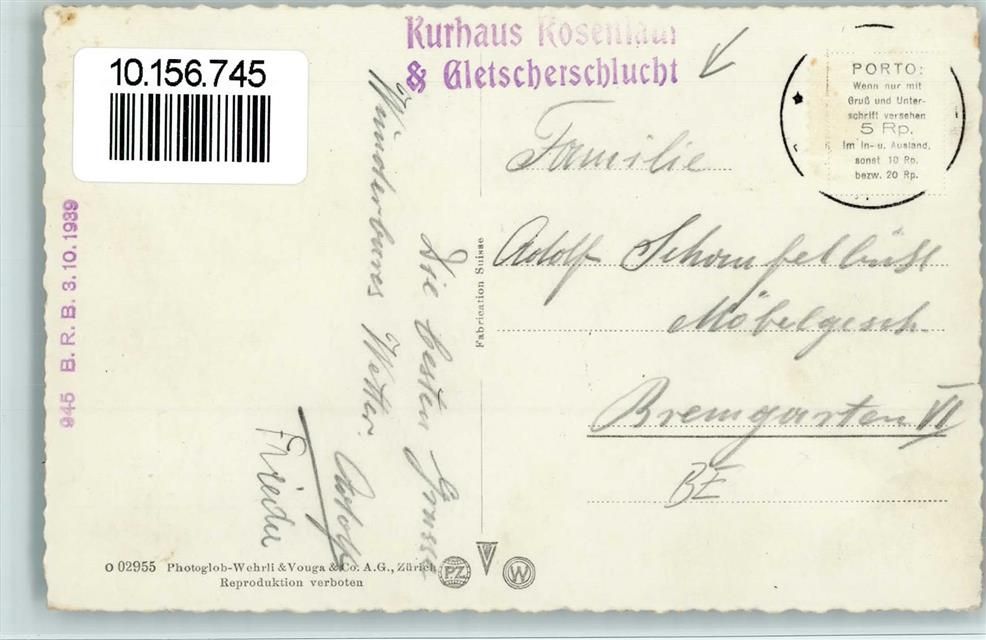 10.156.745
Kurhaus Rosenlaui
& Gletscherschlucht
PORTO:
Wenn nur mit
Gruß und Unter-
schrift versehen
5 Rp.
Im In- u. Ausland,
sonst 10 Rp.
bezw. 20 Rp.
Familie
Adolf
Möbelgesch.
Bremgarten
BE
Die besten Grüsse
Wunderbares Wetter.
Adolf
Frieda
Fabrication Suisse
945 B. R. B. 3. 10. 1939
O 02955 Photoglob-Wehrli & Vouga & Co. A.G., Zürich
Reproduktion verboten
PZ
V
W